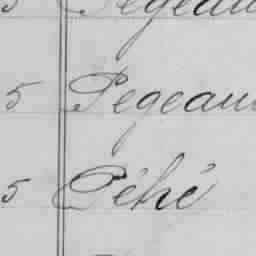 5 Pegeau
5 Pegeau
5 Péhé